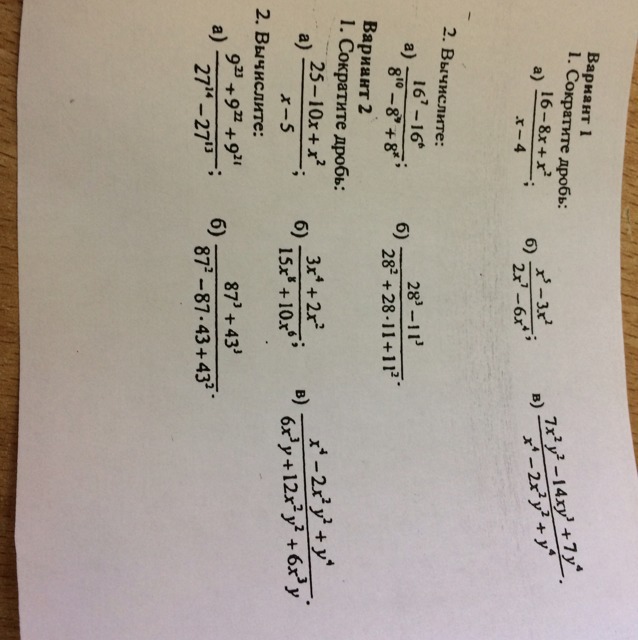 Вариант 1
1. Сократите дробь:
а) (16 − 8x + x²)/(x − 4); б) (x⁵ − 3x²)/(2x⁷ − 6x⁴); в) (7x²y² − 14xy³ + 7y⁴)/(x⁴ − 2x²y² + y⁴).
2. Вычислите:
а) (16⁷ − 16⁶)/(8¹⁰ − 8⁹ + 8⁸); б) (28³ − 11³)/(28² + 28·11 + 11²).
Вариант 2
1. Сократите дробь:
а) (25 − 10x + x²)/(x − 5); б) (3x⁴ + 2x²)/(15x⁸ + 10x⁶); в) (x⁴ − 2x²y² + y⁴)/(6x³y + 12x²y² + 6x³y).
2. Вычислите:
а) (9²³ + 9²² + 9²¹)/(27¹⁴ − 27¹³); б) (87³ + 43³)/(87² − 87·43 + 43²).